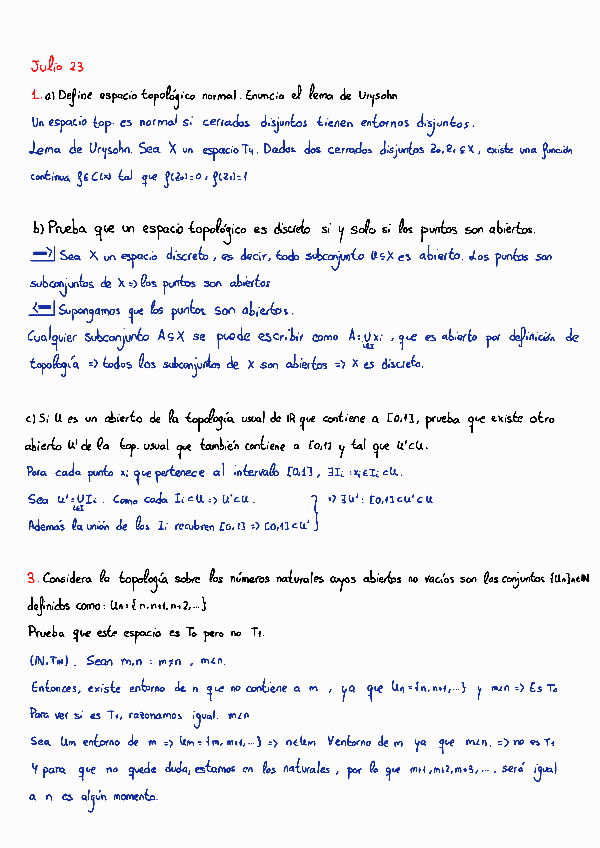 Julio 23
1. a) Define espacio topológico normal. Enuncia el lema de Urysohn
Un espacio top. es normal si cerrados disjuntos tienen entornos disjuntos.
Lema de Urysohn. Sea X un espacio T4. Dados dos cerrados disjuntos Z0, Z1 ⊆ X, existe una función
continua f ∈ C(X) tal que f(Z0)=0, f(Z1)=1
b) Prueba que un espacio topológico es discreto si y solo si los puntos son abiertos.
=>| Sea X un espacio discreto, es decir, todo subconjunto U⊆X es abierto. Los puntos son
subconjuntos de X => los puntos son abiertos
<=| Supongamos que los puntos son abiertos.
Cualquier subconjunto A⊆X se puede escribir como A=∪xi, que es abierto por definición de
i∈I
topología => todos los subconjuntos de X son abiertos => X es discreto.
c) Si U es un abierto de la topología usual de IR que contiene a [0,1], prueba que existe otro
abierto U' de la top. usual que también contiene a [0,1] y tal que U'⊂U.
Para cada punto xi que pertenece al intervalo [0,1], ∃Ii : xi∈Ii⊂U.
Sea U'=∪Ii. Como cada Ii⊂U => U'⊂U. } => ∃U' : [0,1]⊂U'⊂U
i∈I
Además la unión de los Ii recubren [0,1] => [0,1]⊂U'
3. Considera la topología sobre los números naturales cuyos abiertos no vacíos son los conjuntos {Un}n∈IN
definidos como: Un={n,n+1,n+2,...}
Prueba que este espacio es T0 pero no T1.
(IN,TIN). Sean m,n : m≠n, m<n.
Entonces, existe entorno de n que no contiene a m, ya que Un={n,n+1,...} y m<n => Es T0
Para ver si es T1, razonamos igual. m<n
Sea Um entorno de m => Um={m,m+1,...} => n∈Um ∀entorno de m ya que m<n. => no es T1
Y para que no quede duda, estamos en los naturales, por lo que m+1,m+2,m+3,... será igual
a n es algún momento.